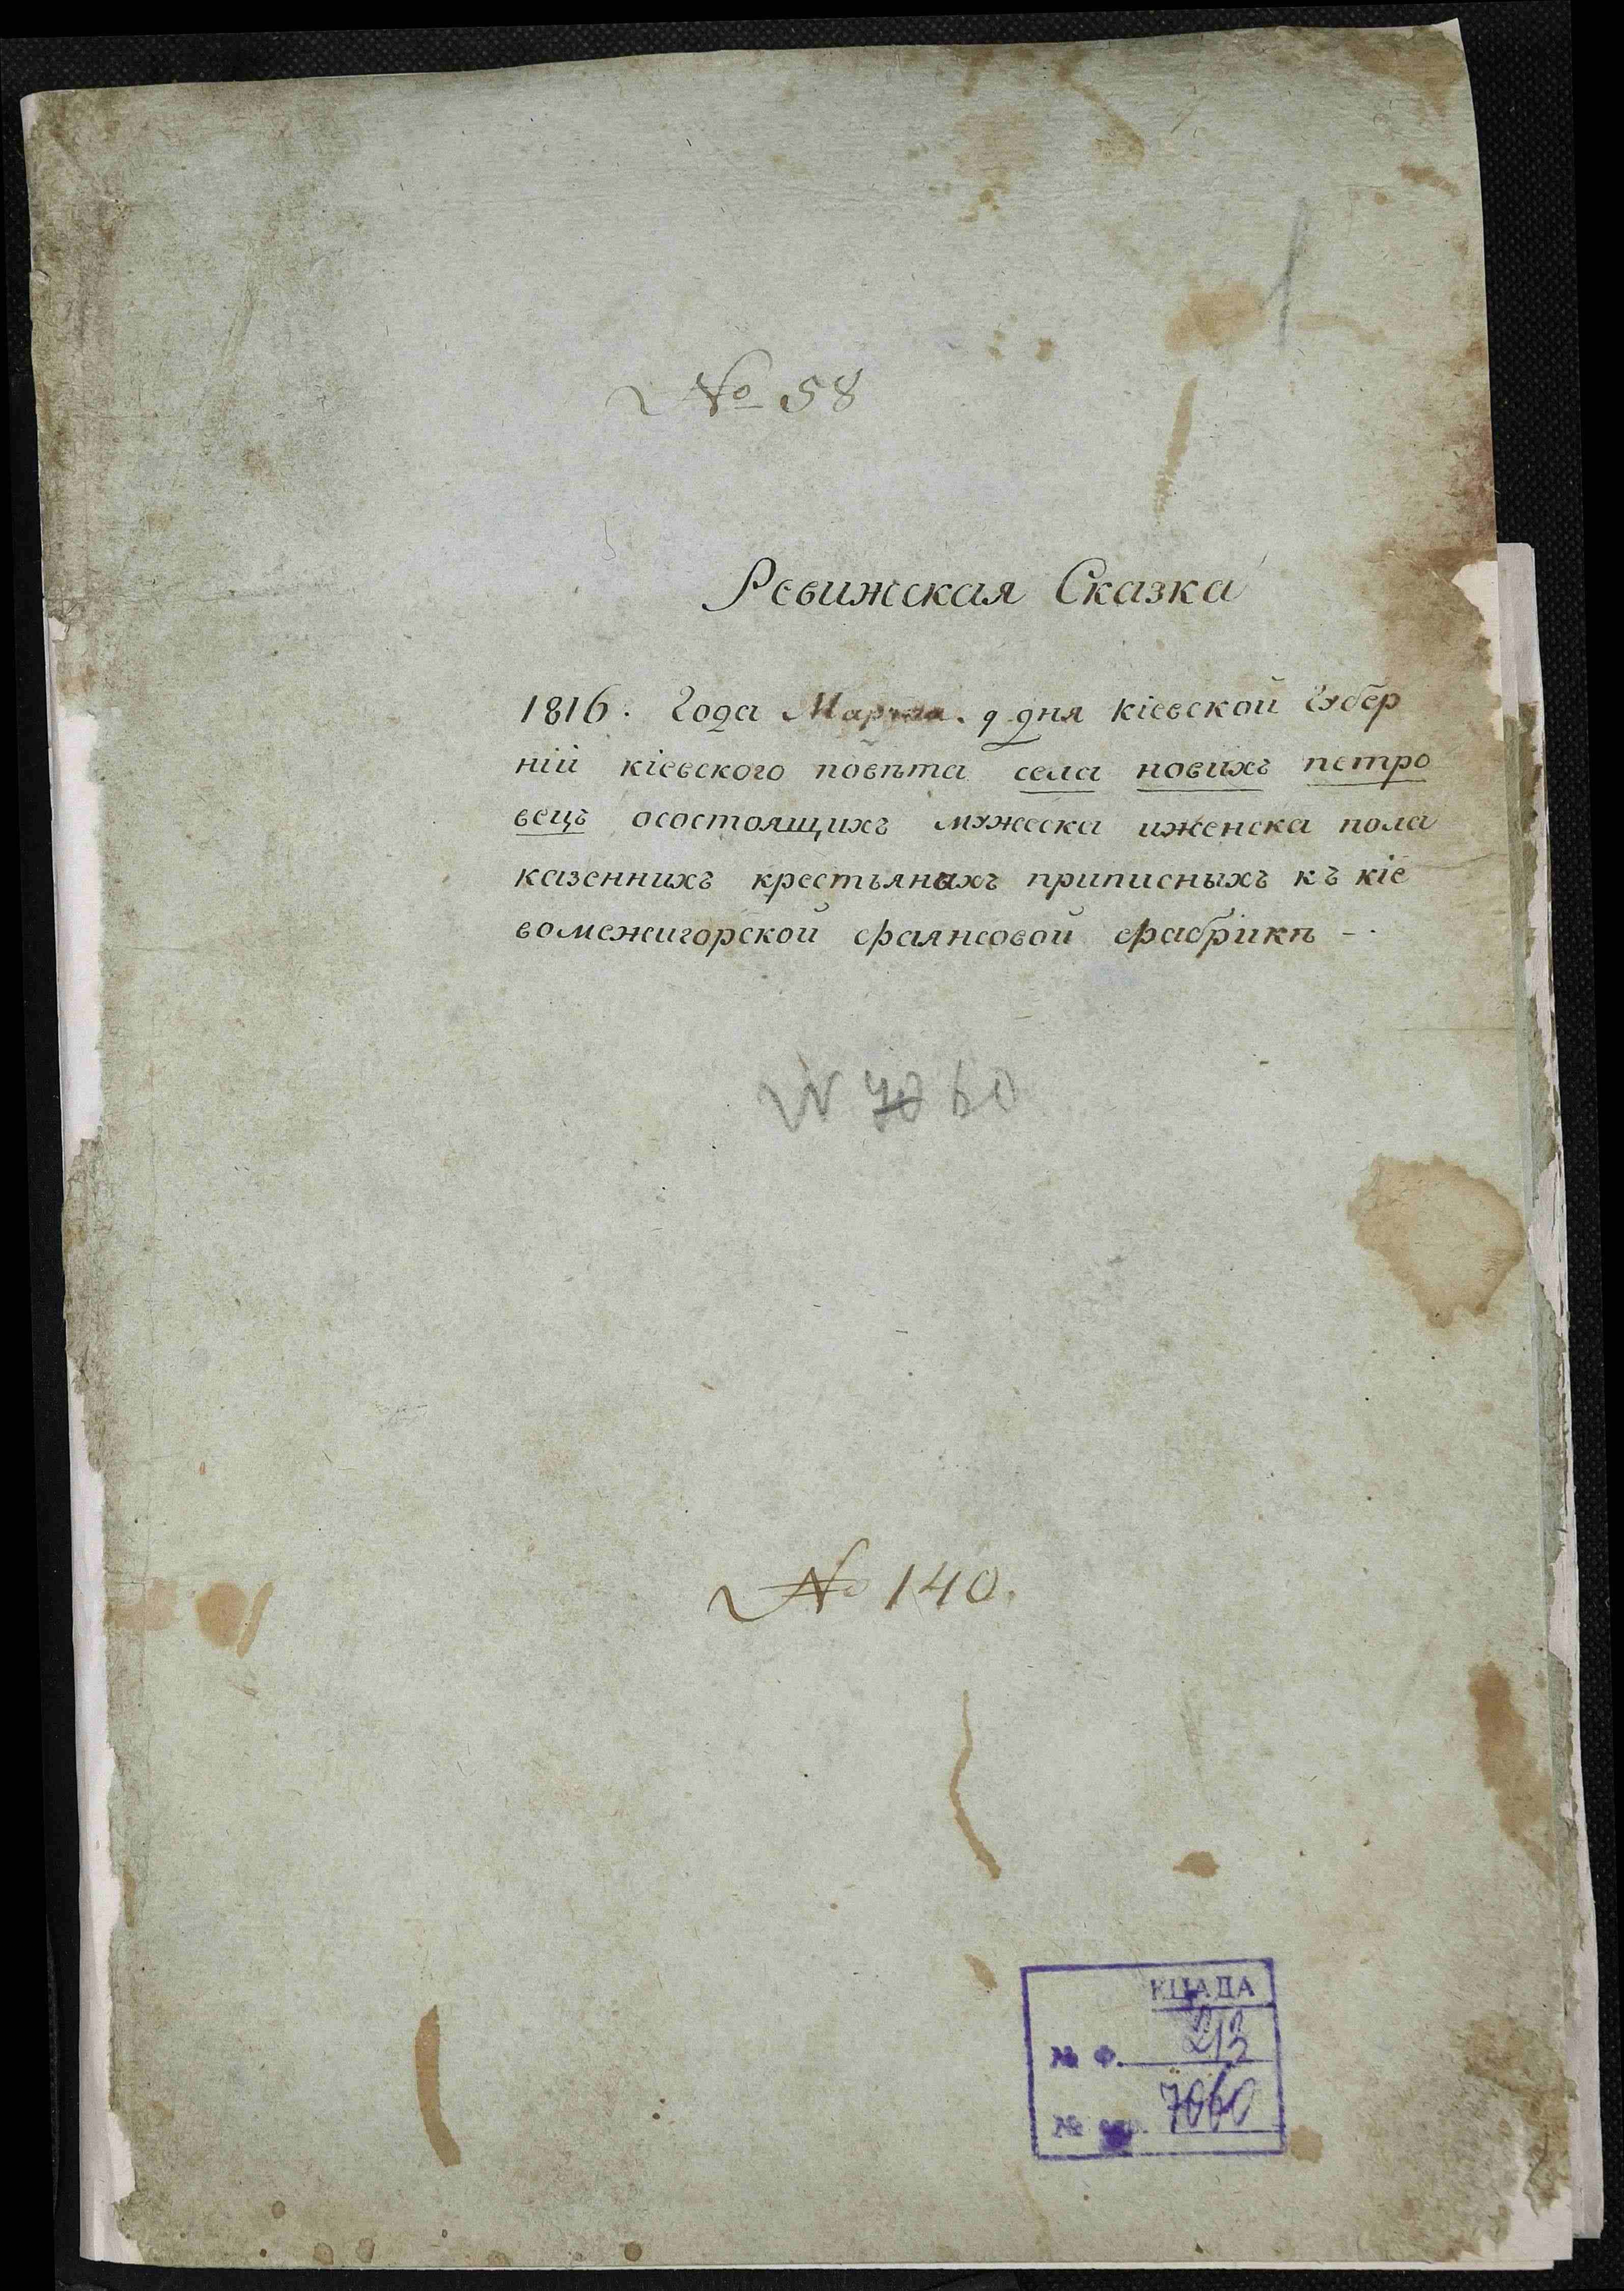 1
№ 58
Ревижская Сказка
1816. Года Марта. 9 дня кіевской Губер
ніи кіевского повѣта села новихъ петро
вецъ осостоящихъ мужеска иженска пола
казеннихъ крестьянахъ приписныхъ къ кіе
вомежигорской фаянсовой фабрикѣ -.
N 7060
№ 140.
КЦАДА
№ Ф. 213
№ 7060